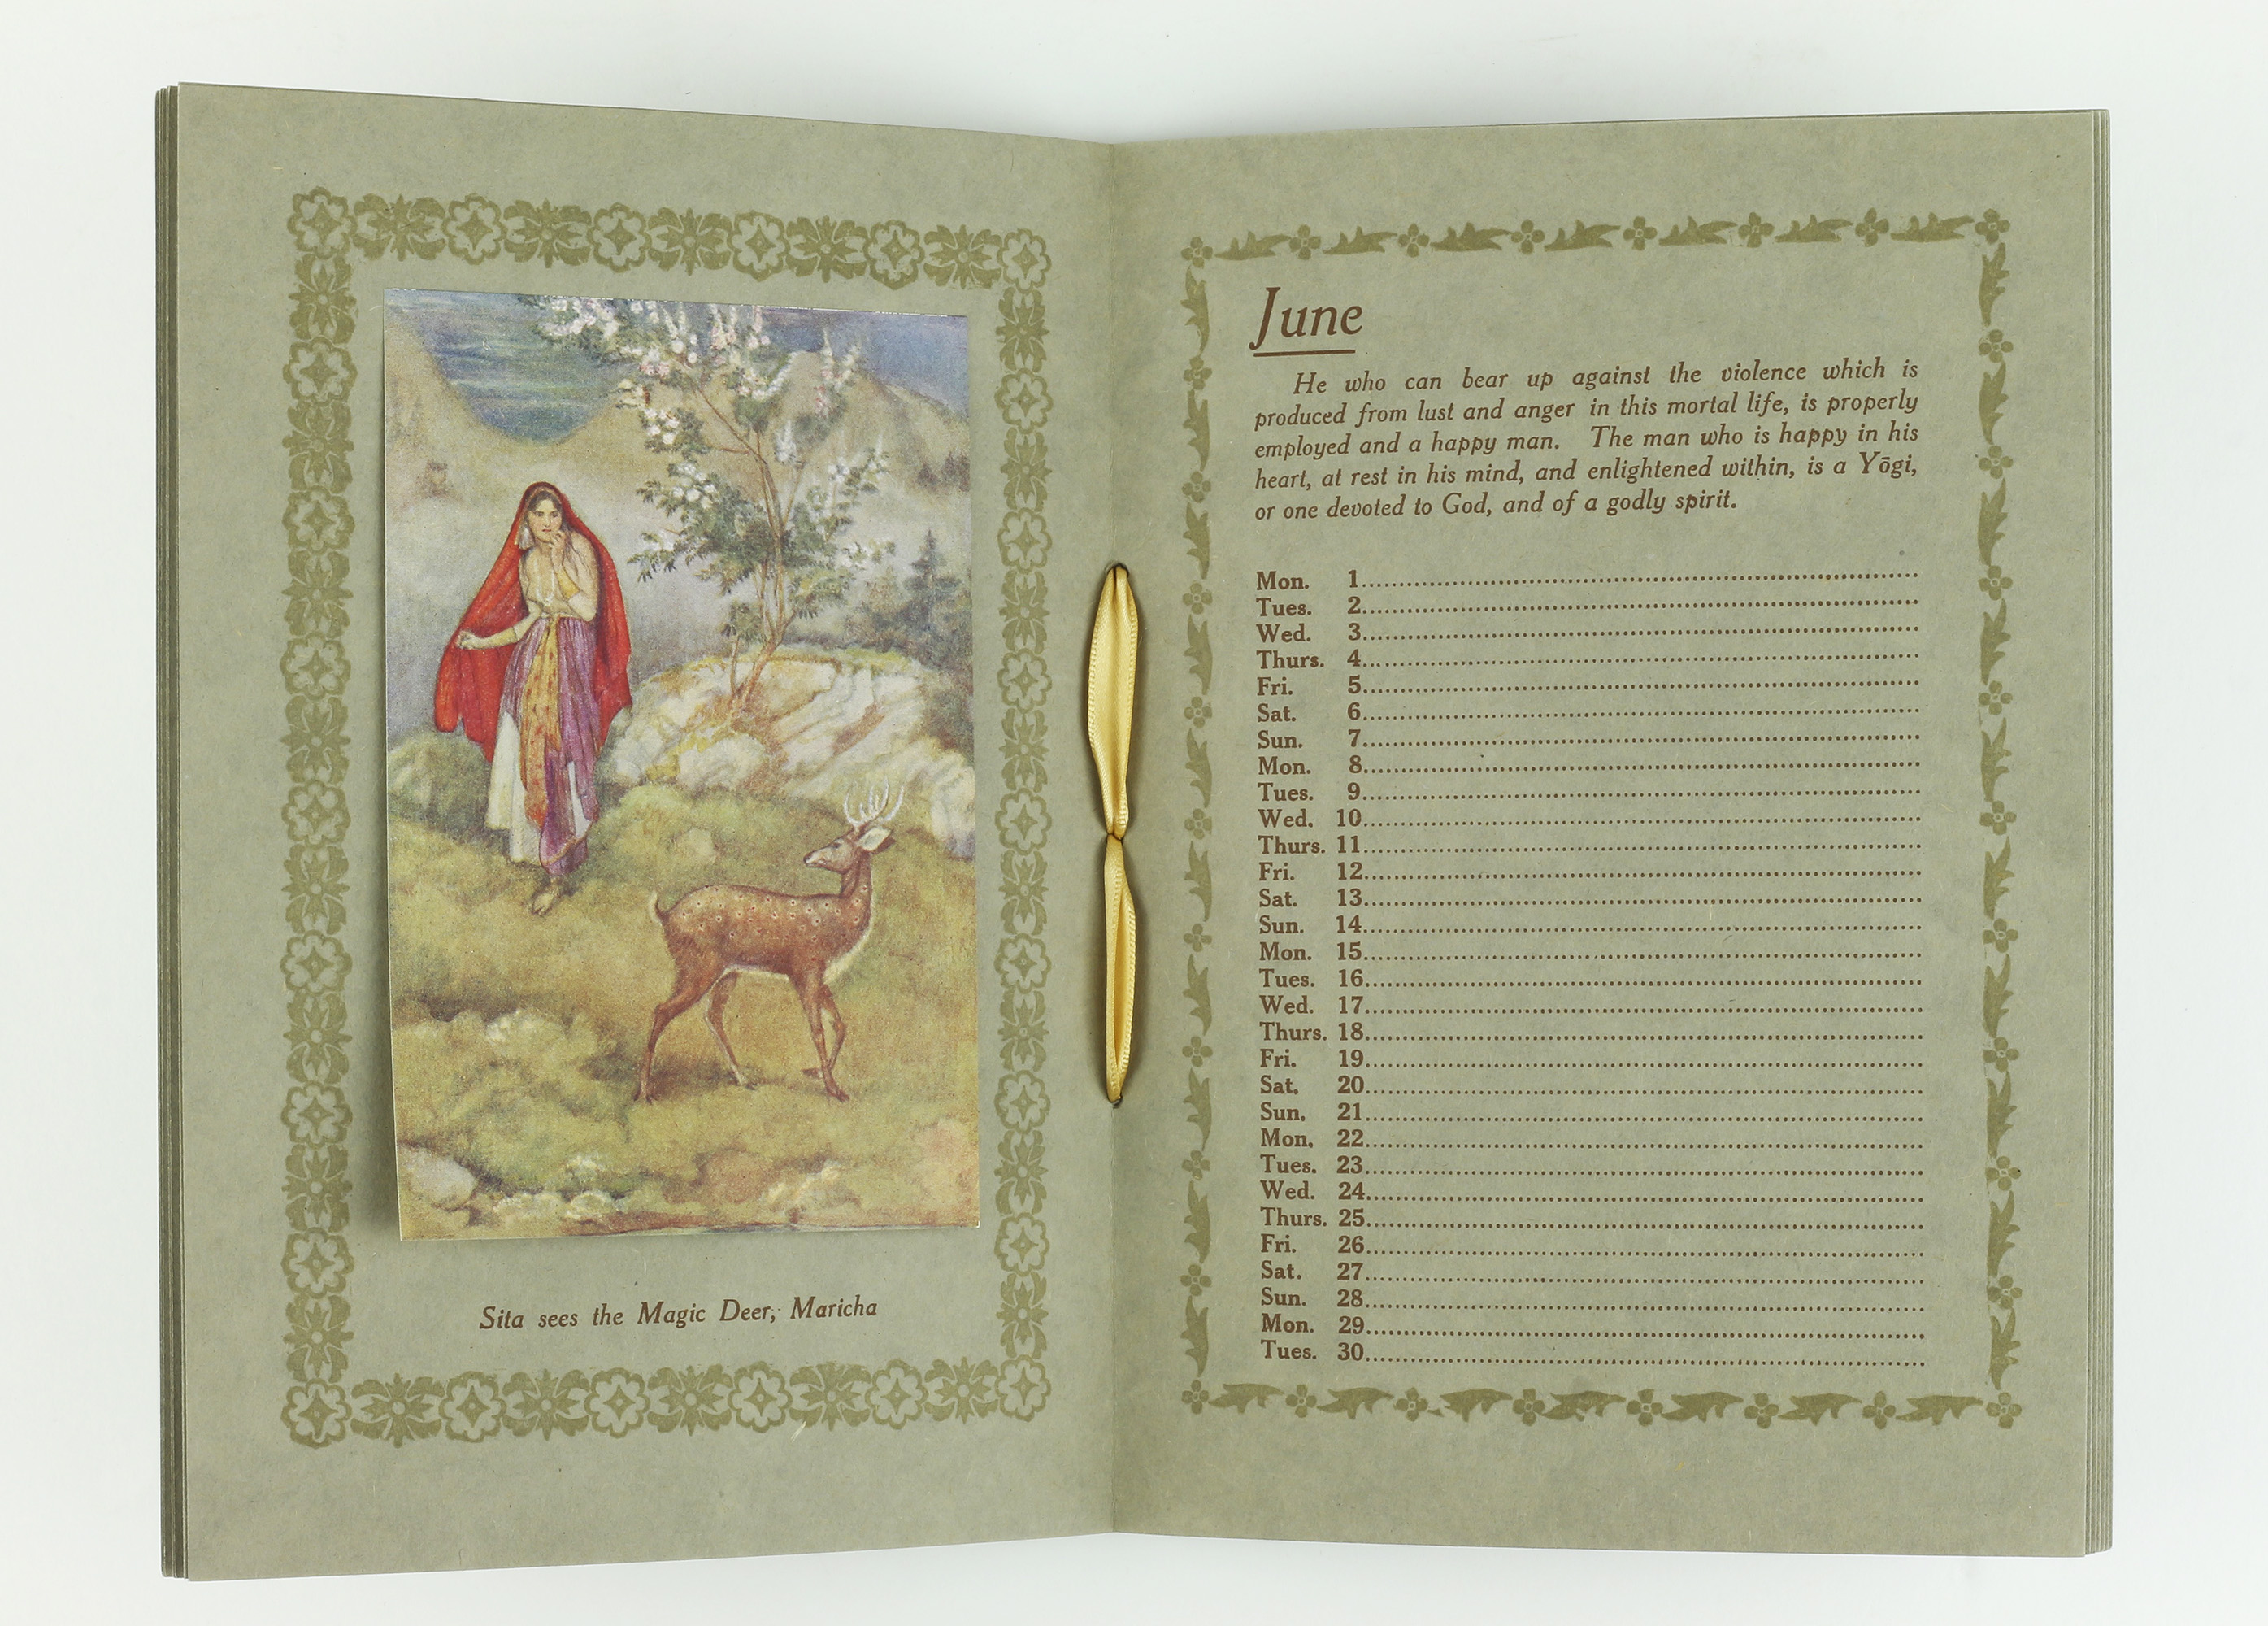 Sita sees the Magic Deer, Maricha
June
He who can bear up against the violence which is
produced from lust and anger in this mortal life, is properly
employed and a happy man. The man who is happy in his
heart, at rest in his mind, and enlightened within, is a Yōgi,
or one devoted to God, and of a godly spirit.
Mon. 1
Tues. 2
Wed. 3
Thurs. 4
Fri. 5
Sat. 6
Sun. 7
Mon. 8
Tues. 9
Wed. 10
Thurs. 11
Fri. 12
Sat. 13
Sun. 14
Mon. 15
Tues. 16
Wed. 17
Thurs. 18
Fri. 19
Sat. 20
Sun. 21
Mon. 22
Tues. 23
Wed. 24
Thurs. 25
Fri. 26
Sat. 27
Sun. 28
Mon. 29
Tues. 30